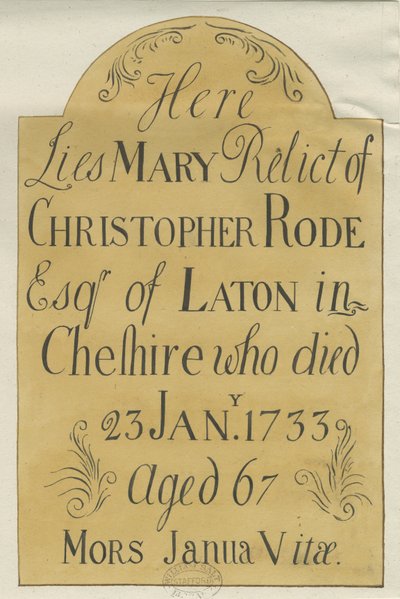 Here
Lies MARY Relict of
CHRISTOPHER RODE
Esqr of LATON in
Cheſhire who died
23 JANY. 1733
Aged 67
MORS JANUA VITÆ.
STAFFORD